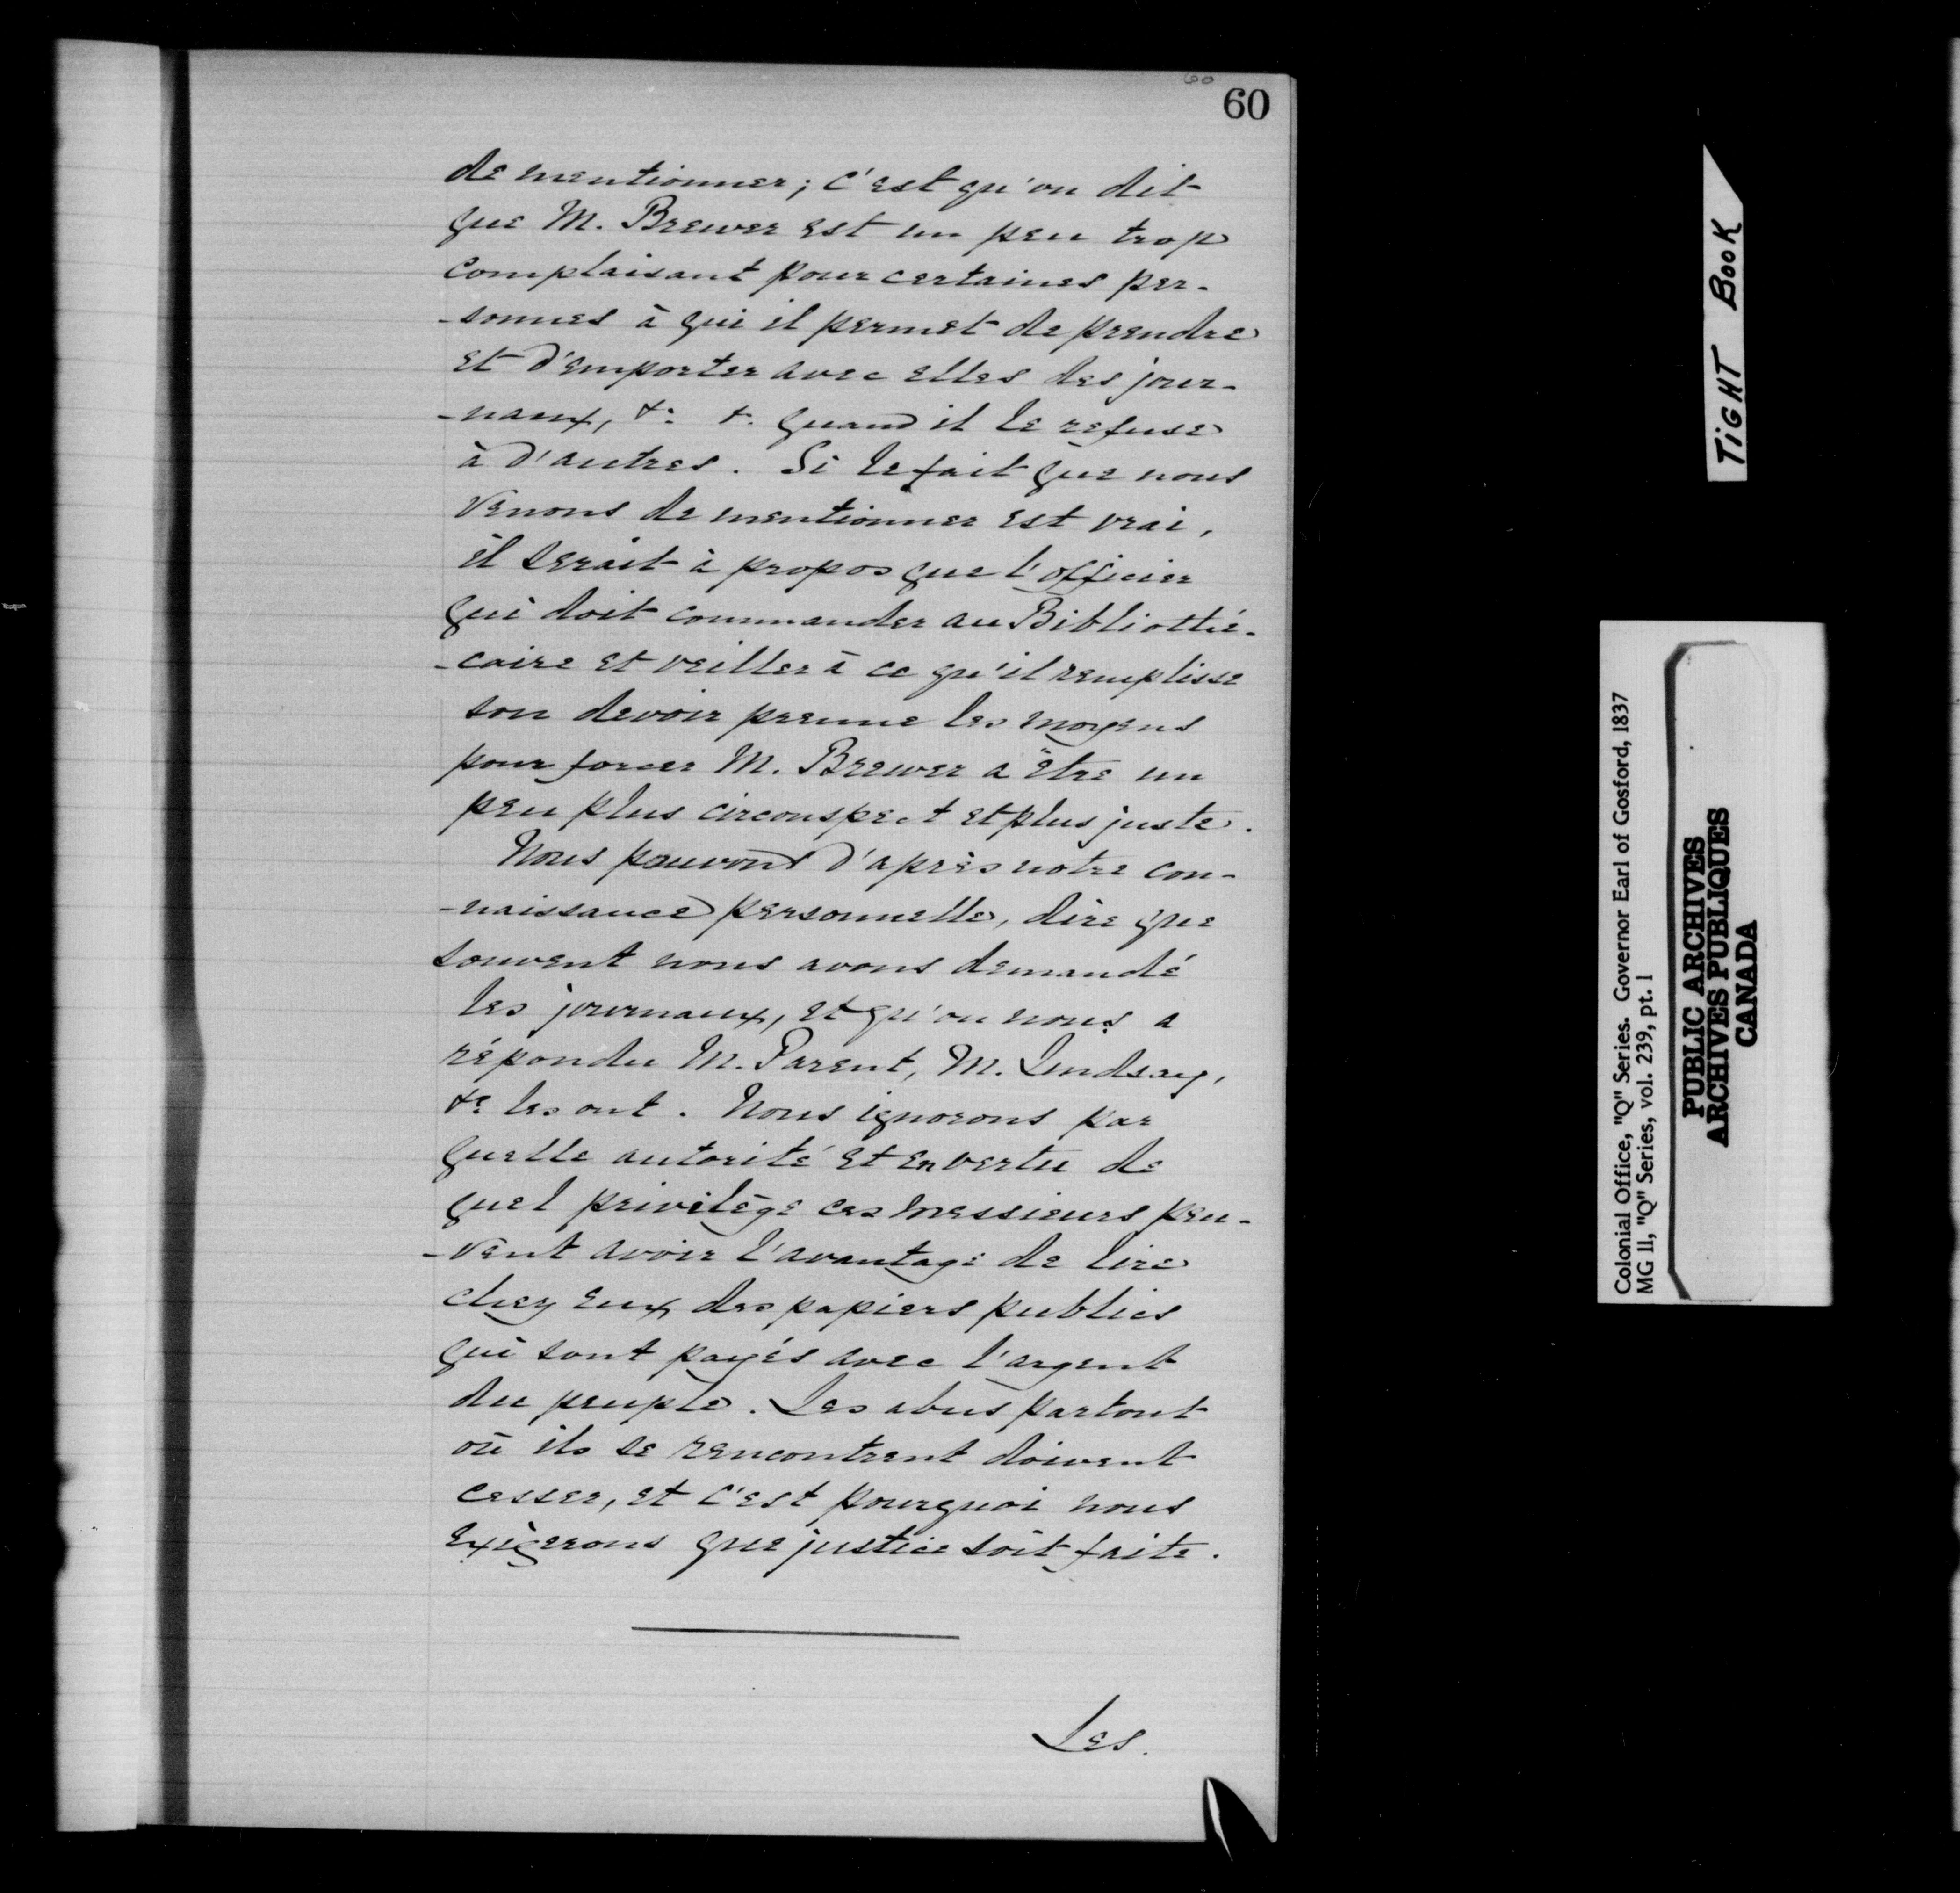 60
60
de mentionner; c'est qu'on dit
que M. Brewer est un peu trop
complaisant pour certaines per-
-sonnes à qui il permet de prendre
et d'emporter avec elles des jour-
-naux, &c &. quand il le refuse
à d'autres. Si le fait que nous
venons de mentionner est vrai,
il serait à propos que l'officier
qui doit commander au Bibliothé-
-caire et veiller à ce qu'il remplisse
son devoir prenne les moyens
pour forcer M. Brewer a être un
peu plus circonspect et plus juste.
Nous pouvons d'après notre con-
-naissance personnelle, dire que
souvent nous avons demandé
les journaux, et qu'on nous a
répondu M. Parent, M. Lindsay,
&c les ont. Nous ignorons par
quelle autorité et en vertu de
quel privilège ces messieurs peu-
-vent avoir l'avantage de lire
chez eux des papiers publics
qui sont payés avec l'argent
du peuple. Les abus partout
où ils se rencontrent doivent
cesser, et c'est pourquoi nous
exigerons que justice soit faite.
Les.
TIGHT BOOK
Colonial Office, "Q" Series. Governor Earl of Gosford, 1837
MG 11, "Q" Series, vol. 239, pt. 1
PUBLIC ARCHIVES
ARCHIVES PUBLIQUES
CANADA